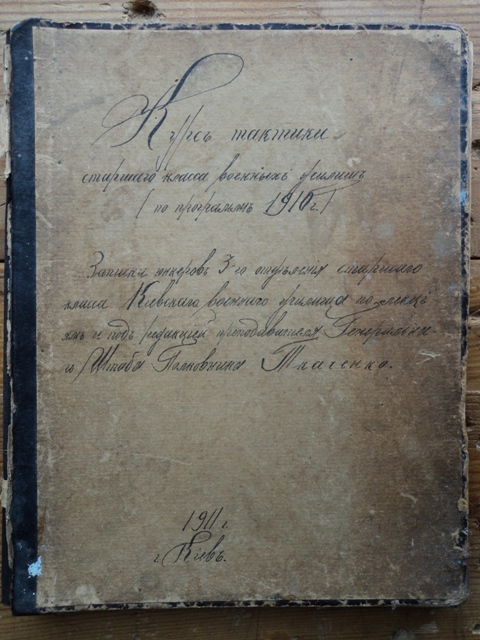 Курсъ тактики
старшаго класса военныхъ училищъ
(по программѣ 1910 г.)
Записки юнкеровъ 3-го отдѣленія старшаго
класса Кіевскаго военнаго училища по лекці-
ямъ и подъ редакціей преподавателя Генерально-
го Штаба Полковника Ткаченко.
1911 г.
г. Кіевъ.